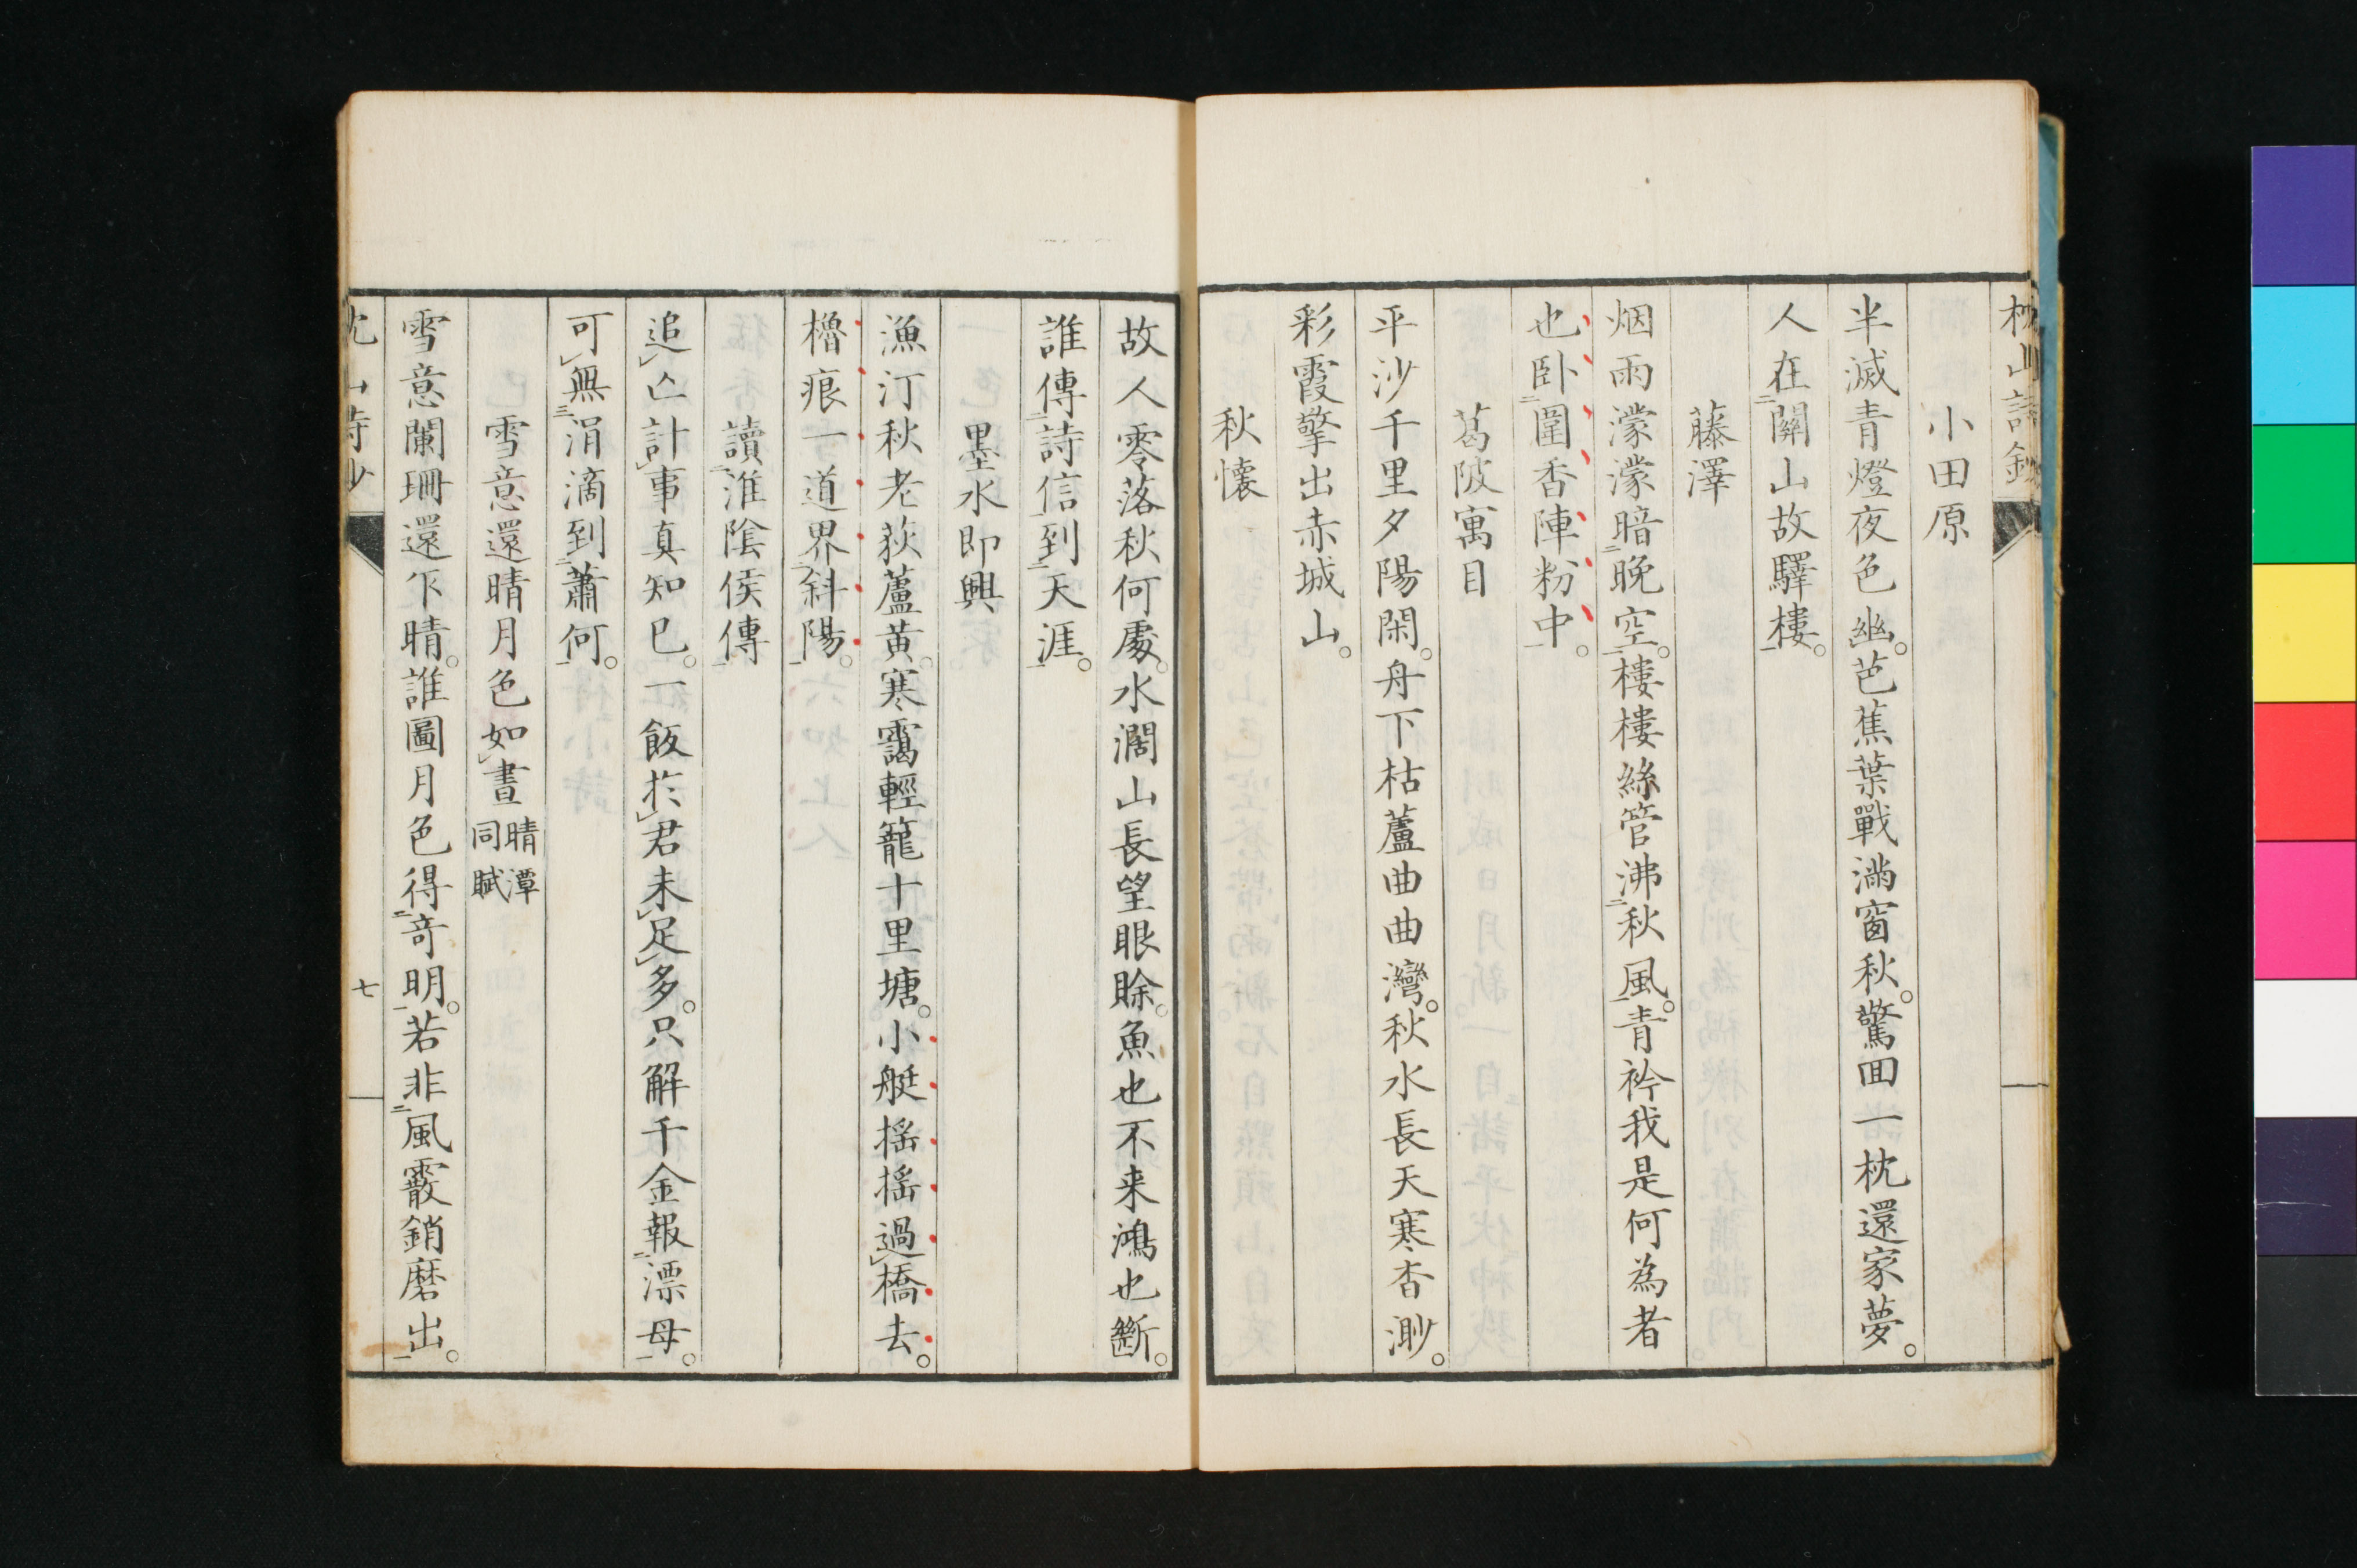 枕山詩鈔
小田原
半滅青燈夜色幽。芭蕉葉戰滿窗秋。驚囬一枕還家夢。
人在二關山故驛樓一。
藤澤
烟雨濛濛暗二晚空一。樓樓絲管沸二秋風一。青衿我是何為者
也臥二圍香陣粉中一。
葛陂寓目
平沙千里夕陽閑。舟下枯蘆曲曲灣。秋水長天寒杳渺。
彩霞擎出赤城山。
秋懷
故人零落秋何處。水濶山長望眼賒。魚也不来鴻也斷。
誰傳二詩信一到二天涯一。
墨水即興
漁汀秋老荻蘆黃。寒靄輕籠十里塘。小艇搖搖過レ橋去。
櫓痕一道界二斜陽一。
讀二淮陰侯傳一
追レ亾計レ事真知已。一飯於レ君未レ足レ多。只解千金報二漂母一。
可レ無三涓滴到二蕭何一。
雪意還晴月色如レ晝晴潭同賦
雪意闌珊還乍晴。誰圖月色得二竒明一。若非二風霰銷磨出一。
枕山詩鈔
七